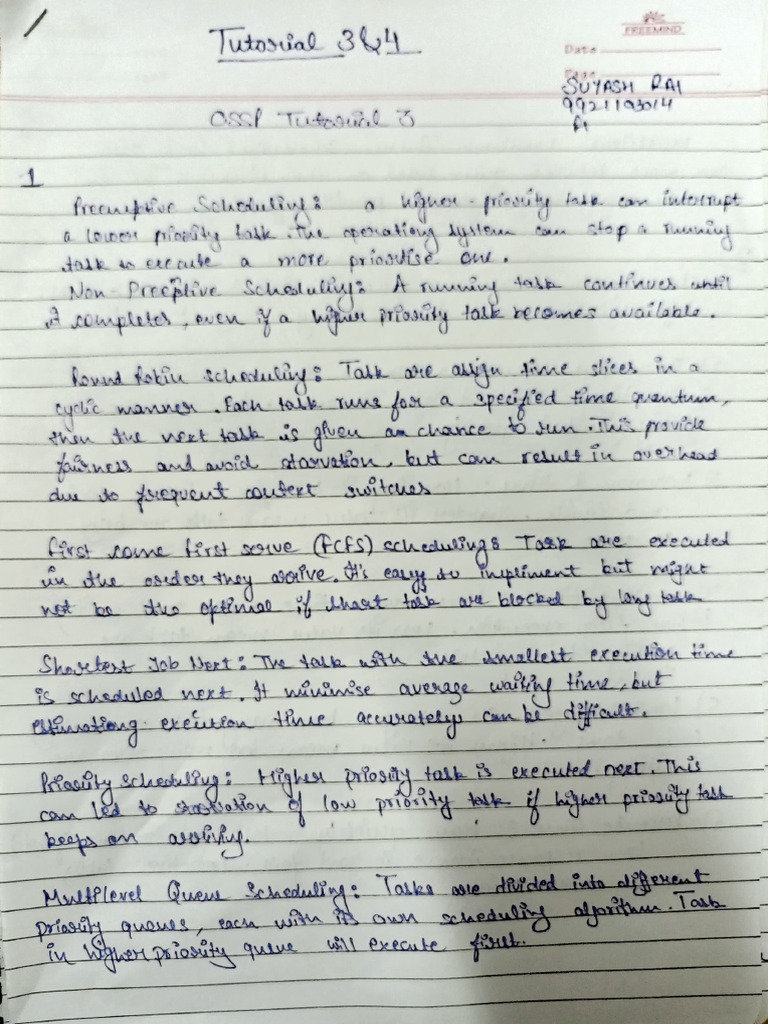 Tutorial 3&4
FREEMIND
Date
Page
SUYASH RAI
9921103014
OSSP Tutorial 3
1
Preemptive Scheduling: a higher-priority task can interrupt
a lower priority task. The operating system can stop a running
task to execute a more prioritise one.
Non-Preeptive Scheduling: A running task continues until
it completes, even if a higher priority task becomes available.
Round Robin scheduling: Task are assign time slices in a
cyclic manner. Each task runs for a specified time quantum,
then the next task is given a chance to run. This provide
fairness and avoid starvation, but can result in overhead
due to frequent context switches
First come first serve (FCFS) scheduling: Task are executed
in the order they arrive. It's easy to impliment but might
not be the optimal if short task are blocked by long task
Shortest Job Next: The task with the smallest execution time
is scheduled next. It minimise average waiting time, but
estimationg execution time accurately can be difficult.
Priority scheduling: Higher priority task is executed next. This
can led to starvation of low priority task if higher priority task
keeps on arriving.
Multilevel Queue Scheduling: Tasks are divided into different
priority queues, each with its own scheduling algorithm. Task
in higher priority queue will execute first.